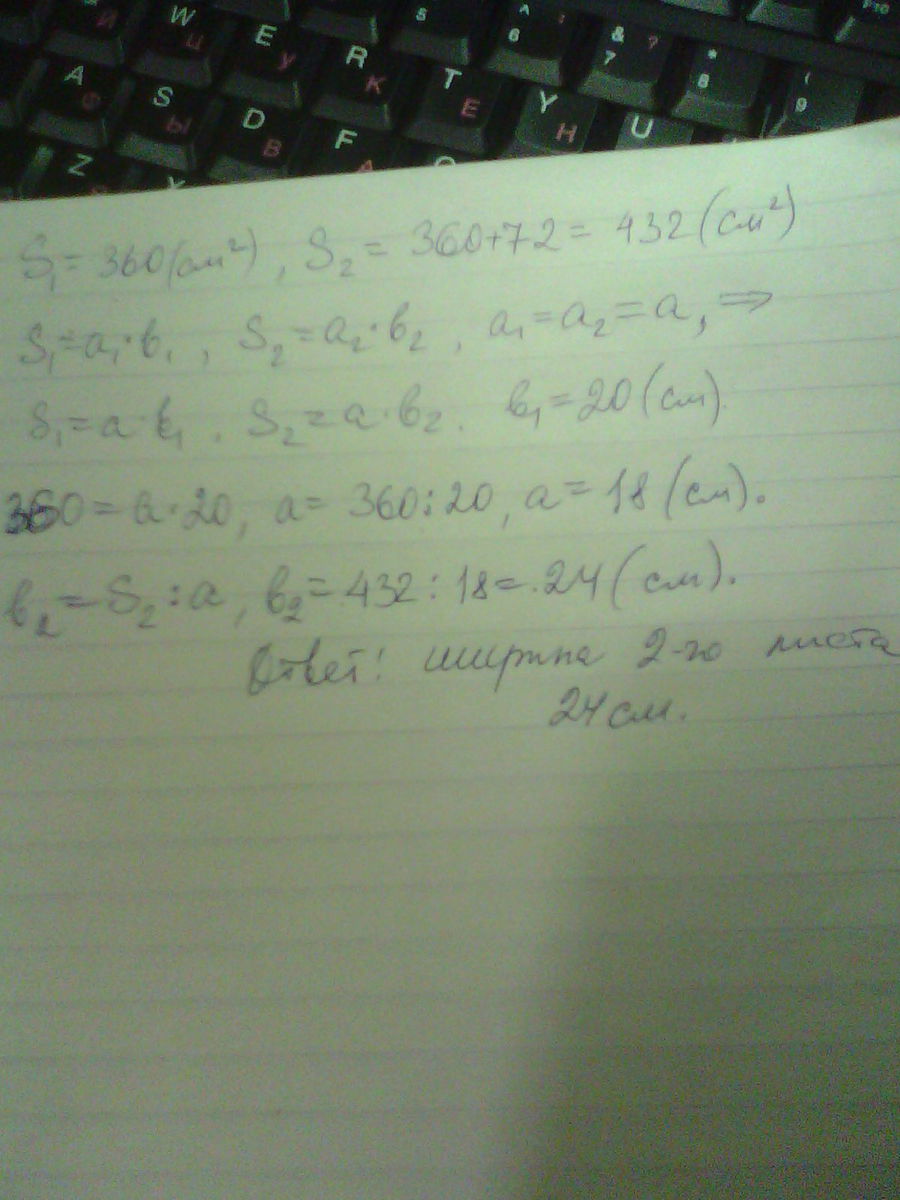 W Ц E У R К 5 ^ : 6 & ? 7 * 8 ( 9 F10
A Ф S Ы D В F А T Е Y Н U
Z
S₁ = 360 (см²), S₂ = 360+72 = 432 (см²)
S₁=a₁·b₁, S₂=a₂·b₂, a₁=a₂=a, ⇒
S₁=a·b₁. S₂=a·b₂. b₁=20 (см).
360=a·20, a=360:20, a=18 (см).
b₂=S₂:a, b₂=432:18=24 (см).
Ответ: ширина 2-го листа
24 см.